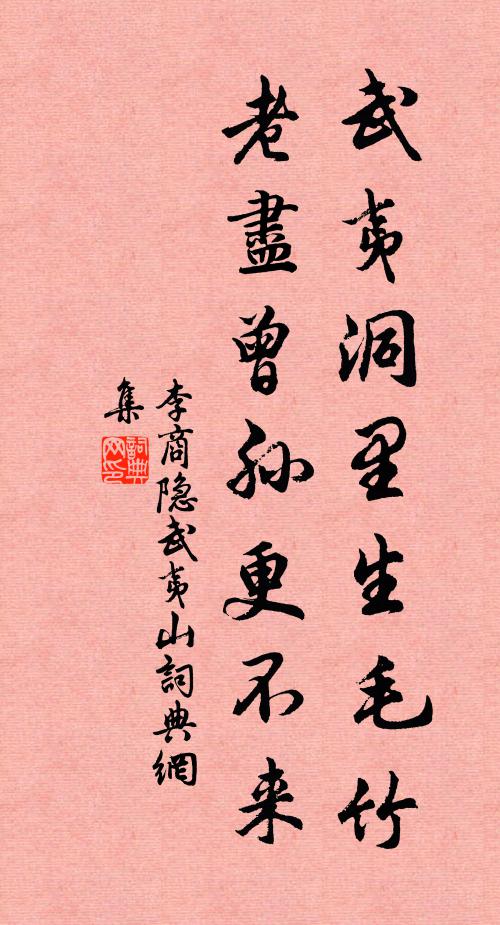 武夷洞里生毛竹
老盡曾孙更不来
李商隐武夷山詞典網
集
詞典網印